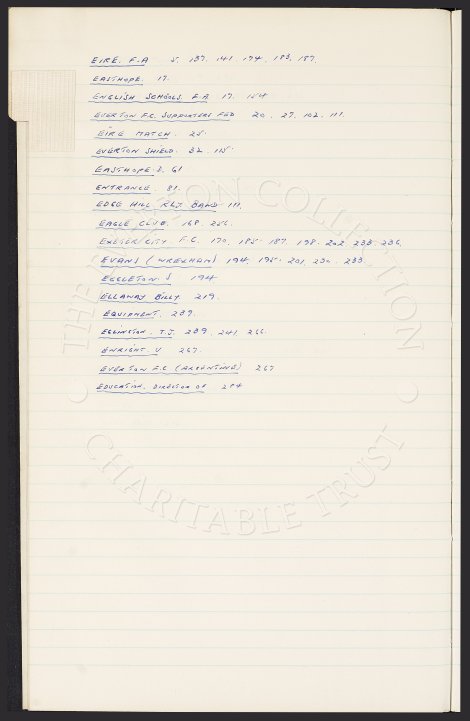 EIRE. F.A 5. 137. 141. 174. 183. 187.
EASTHOPE. 17.
ENGLISH SCHOOLS F.A. 17. 154
EVERTON F.C. SUPPORTERS FED 20. 27. 102. 111.
EIRE MATCH. 25.
EVERTON SHIELD. 32. 115.
EASTHOPE. J. 61
ENTRANCE. 81.
EDGE HILL RLY. BAND 111.
EAGLE CLUB. 168. 256.
EXETER CITY F.C. 170. 185. 187. 198. 202. 235. 236.
EVANS (WREXHAM) 194. 195. 201. 230. 233.
EGGLETON. J 194
ELLAWAY BILLY. 219.
EQUIPMENT. 237.
EGLINGTON. T.J. 239. 241. 266.
ENRIGHT V 267.
EVERTON F.C. (ARGENTINE) 267
EDUCATION. DIRECTOR OF 284
THE EVERTON COLLECTION
CHARITABLE TRUST